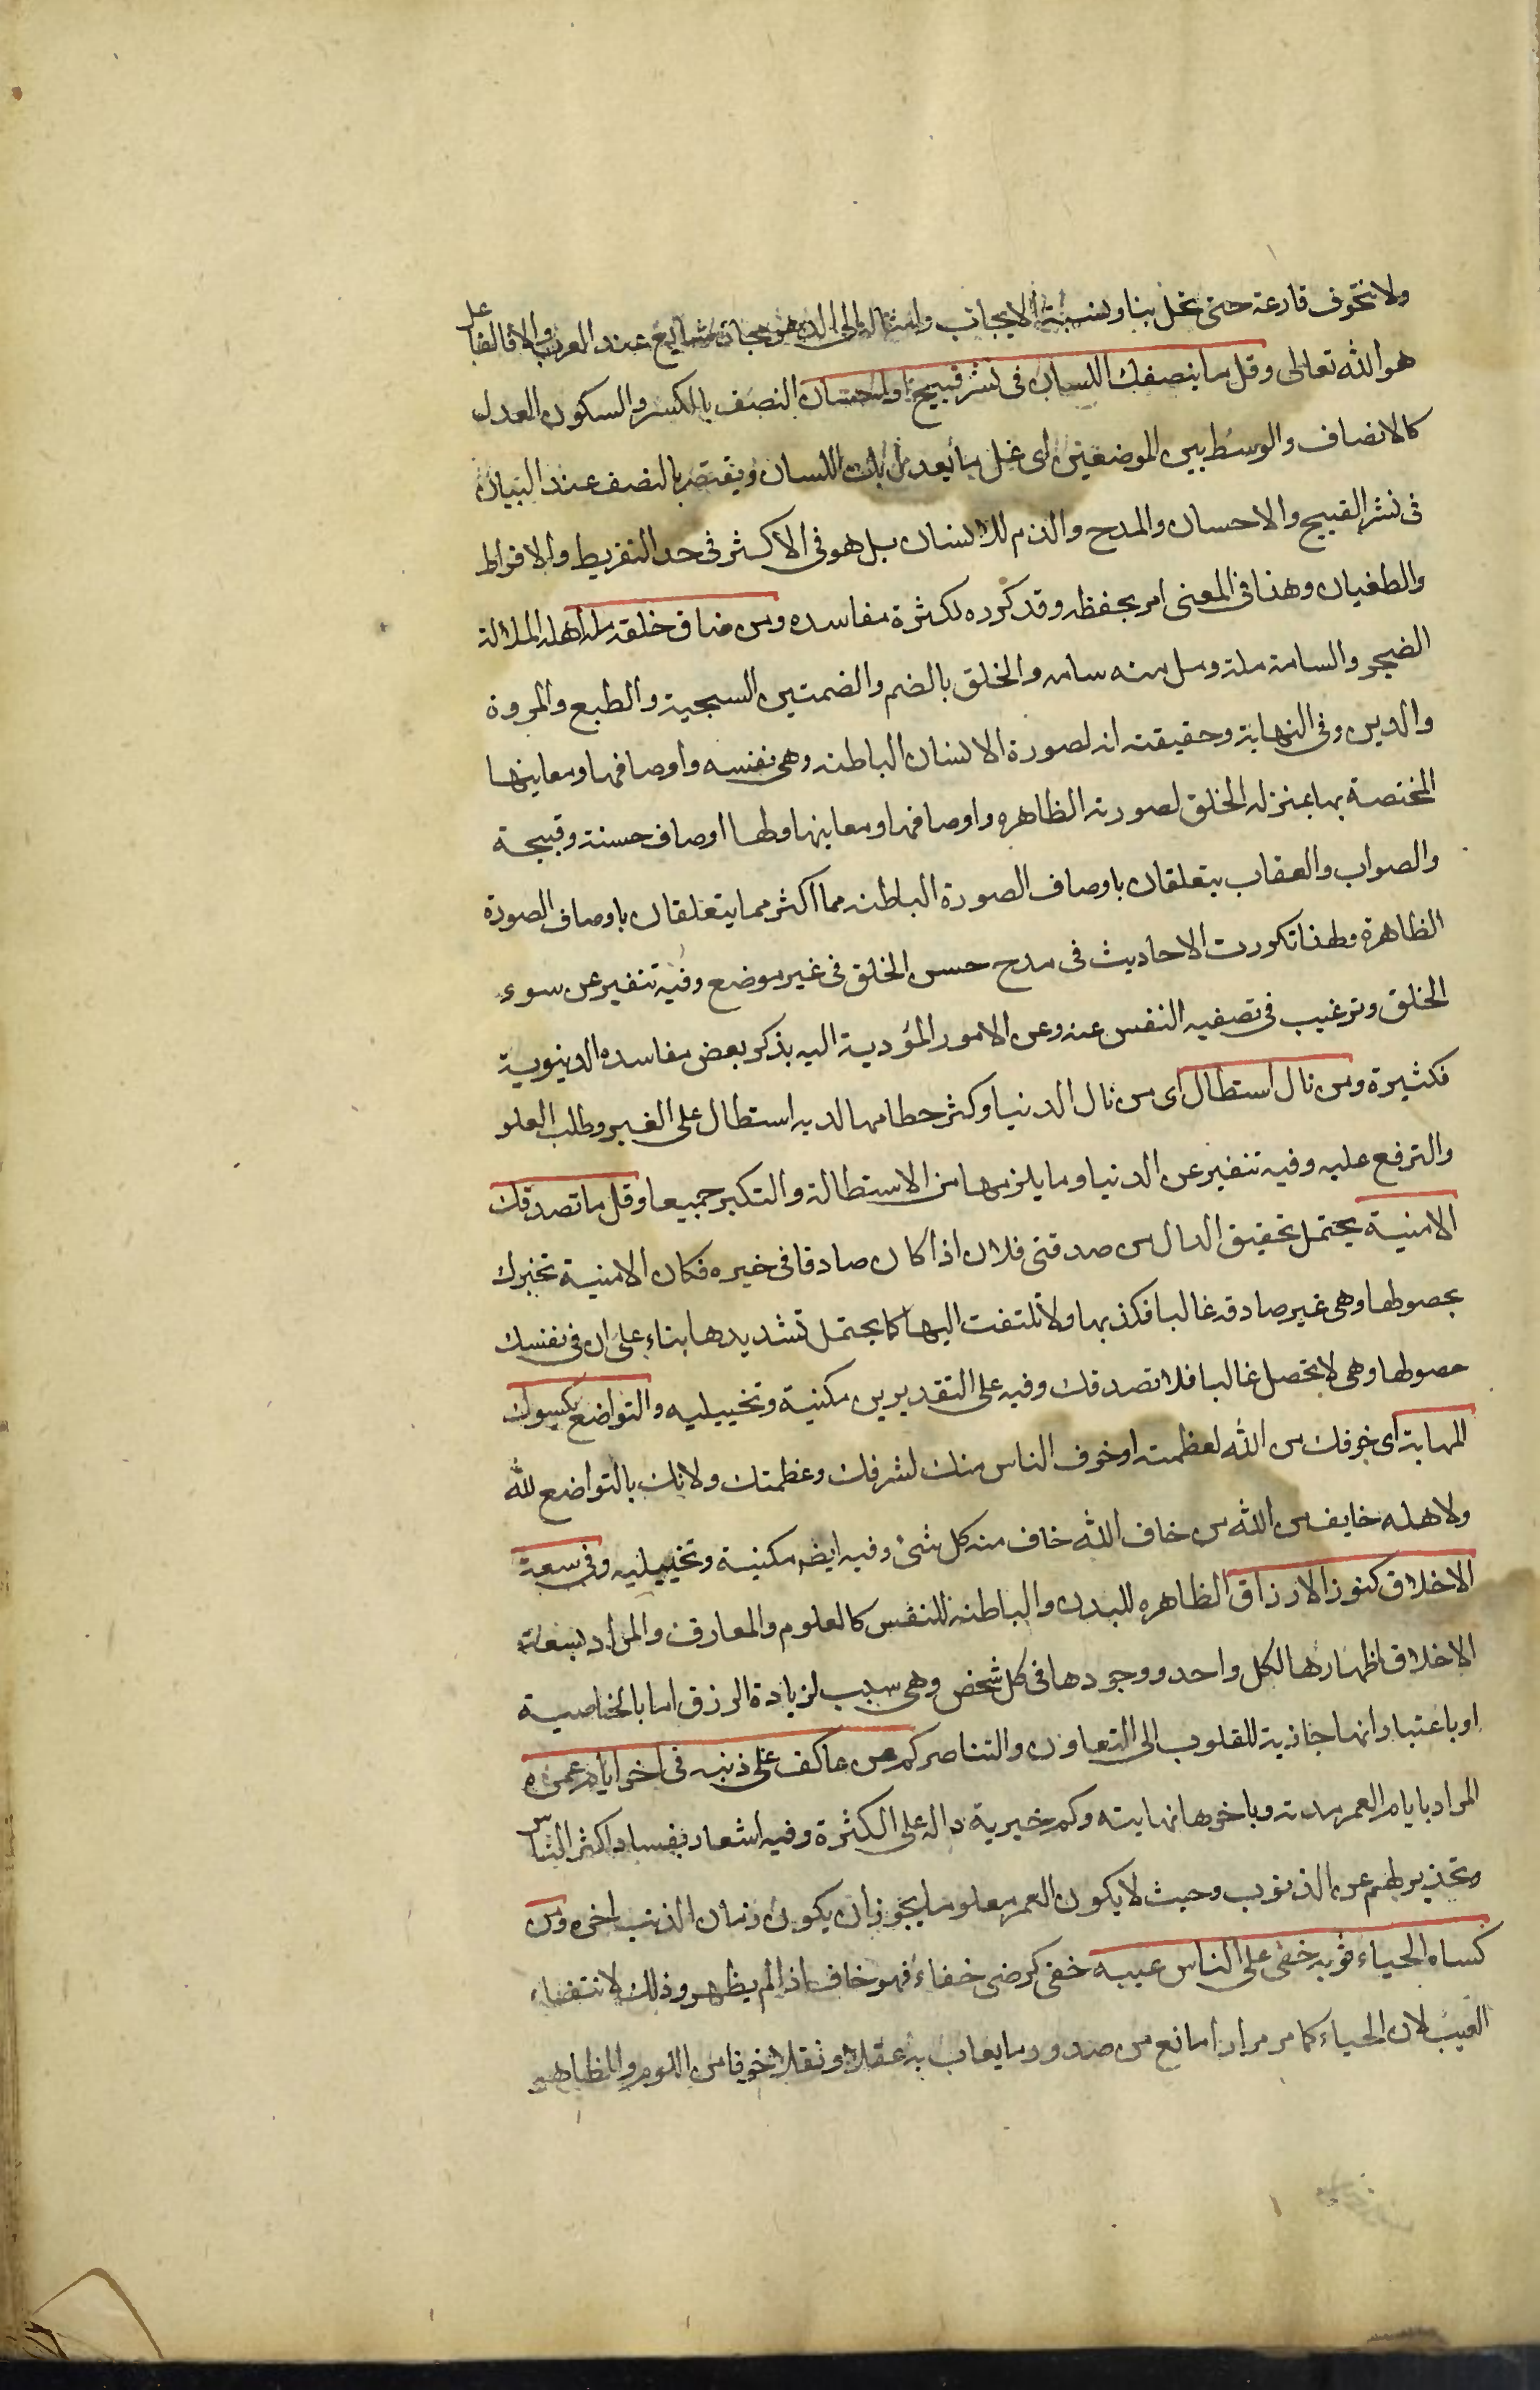 ولا نتخوف قارعة حتى تحل بنا ونسبة الايجاب وامثاله الى الدهر مجاز شايع عند العرب والا فالفاعل
هو الله تعالى وقل ما ينصفك اللسان فى نشر قبيح او احسان النصف بالكسر والسكون العدل
كالانصاف والوسط بين الموضعين اى قل ما يعدل بك اللسان ويقتصر بالنصف عند البيان
فى نشر القبيح والاحسان والمدح والذم للانسان بل هو فى الاكثر فى حد التفريط والافراط
والطغيان وهذا فى المعنى امر بحفظه وقد كرره لكثرة مفاسده ومن ضاق خلقه مله اهله الملالة
الضجر والسامة مله ومل منه سامه والخلق بالضم والضمتين السجية والطبع والمروة
والدين وفى النهاية وحقيقته انه لصورة الانسان الباطنه وهى نفسه واوصافها ومعاينها
المختصة بها بمنزله الخلق لصورته الظاهره واوصافها ومعاينها ولها اوصاف حسنة وقبيحة
والصواب والعقاب يتعلقان باوصاف الصورة الباطنه مما اكثر مما يتعلقان باوصاف الصورة
الظاهرة ولهذا تكررت الاحاديث فى مدح حسن الخلق فى غير موضع وفيه تنفير عن سوء
الخلق وترغيب فى تصفيه النفس عنه وعن الامور المؤدية اليه بذكر بعض مفاسده الدينوية
فكثيرة ومن نال استطال اى من نال الدنيا وكثر حطامها لديه استطال على الغير وطلب العلو
والترفع عليه وفيه تنفير عن الدنيا وما يلزمها من الاستطالة والتكبر جميعا وقل ما تصدقك
الامنية يحتمل تخفيق الدال من صدقنى فلان اذا كان صادقا فى خبره فكان الامنية تخبرك
بحصولها وهى غير صادقه غالبا فكذبها ولا تلتفت اليها كما يحتمل تشديدها بناء على ان فى نفسك
حصولها وهى لا تحصل غالبا فلا تصدقك وفيه على التقديرين مكنية وتخييليه والتواضع يكسوك
المهابة اى خوفك من الله لعظمته او خوف الناس منك لشرفك وعظمتك ولانك بالتواضع لله
ولاهله خايف من الله من خاف الله خاف منه كل شئ وفيه ايضا مكنية وتخييليه وفى سعة
الاخلاق كنوز الارزاق الظاهره للبدن والباطنة للنفس كالعلوم والمعارف والمراد بسعة
الاخلاق اظهارها لكل واحد ووجودها فى كل شخص وهى سبب لزيادة الرزق اما بالخاصية
او باعتبار انها جاذبة للقلوب الى التعاون والتناصر كم من عاكف على ذنبه فى اخر ايام عمره
المراد بايام العمر مدته وباخرها نهايته وكم خبرية داله على الكثرة وفيه اشعار بفساد اكثر الناس
وتحذير لهم عن الذنوب وحيث لا يكون العمر معلوما يجوز ان يكون زمان الذنب اخره ومن
كساه الحياء ثوبه خفى على الناس عيبه خفى كرضى خفاء فهو خاف اذا لم يظهر وذلك لانتفاء
العيب لان الحياء كما مر مرارا مانع من صدور ما يعاب به عقلا ونقلا خوفا من اللوم والظاهر